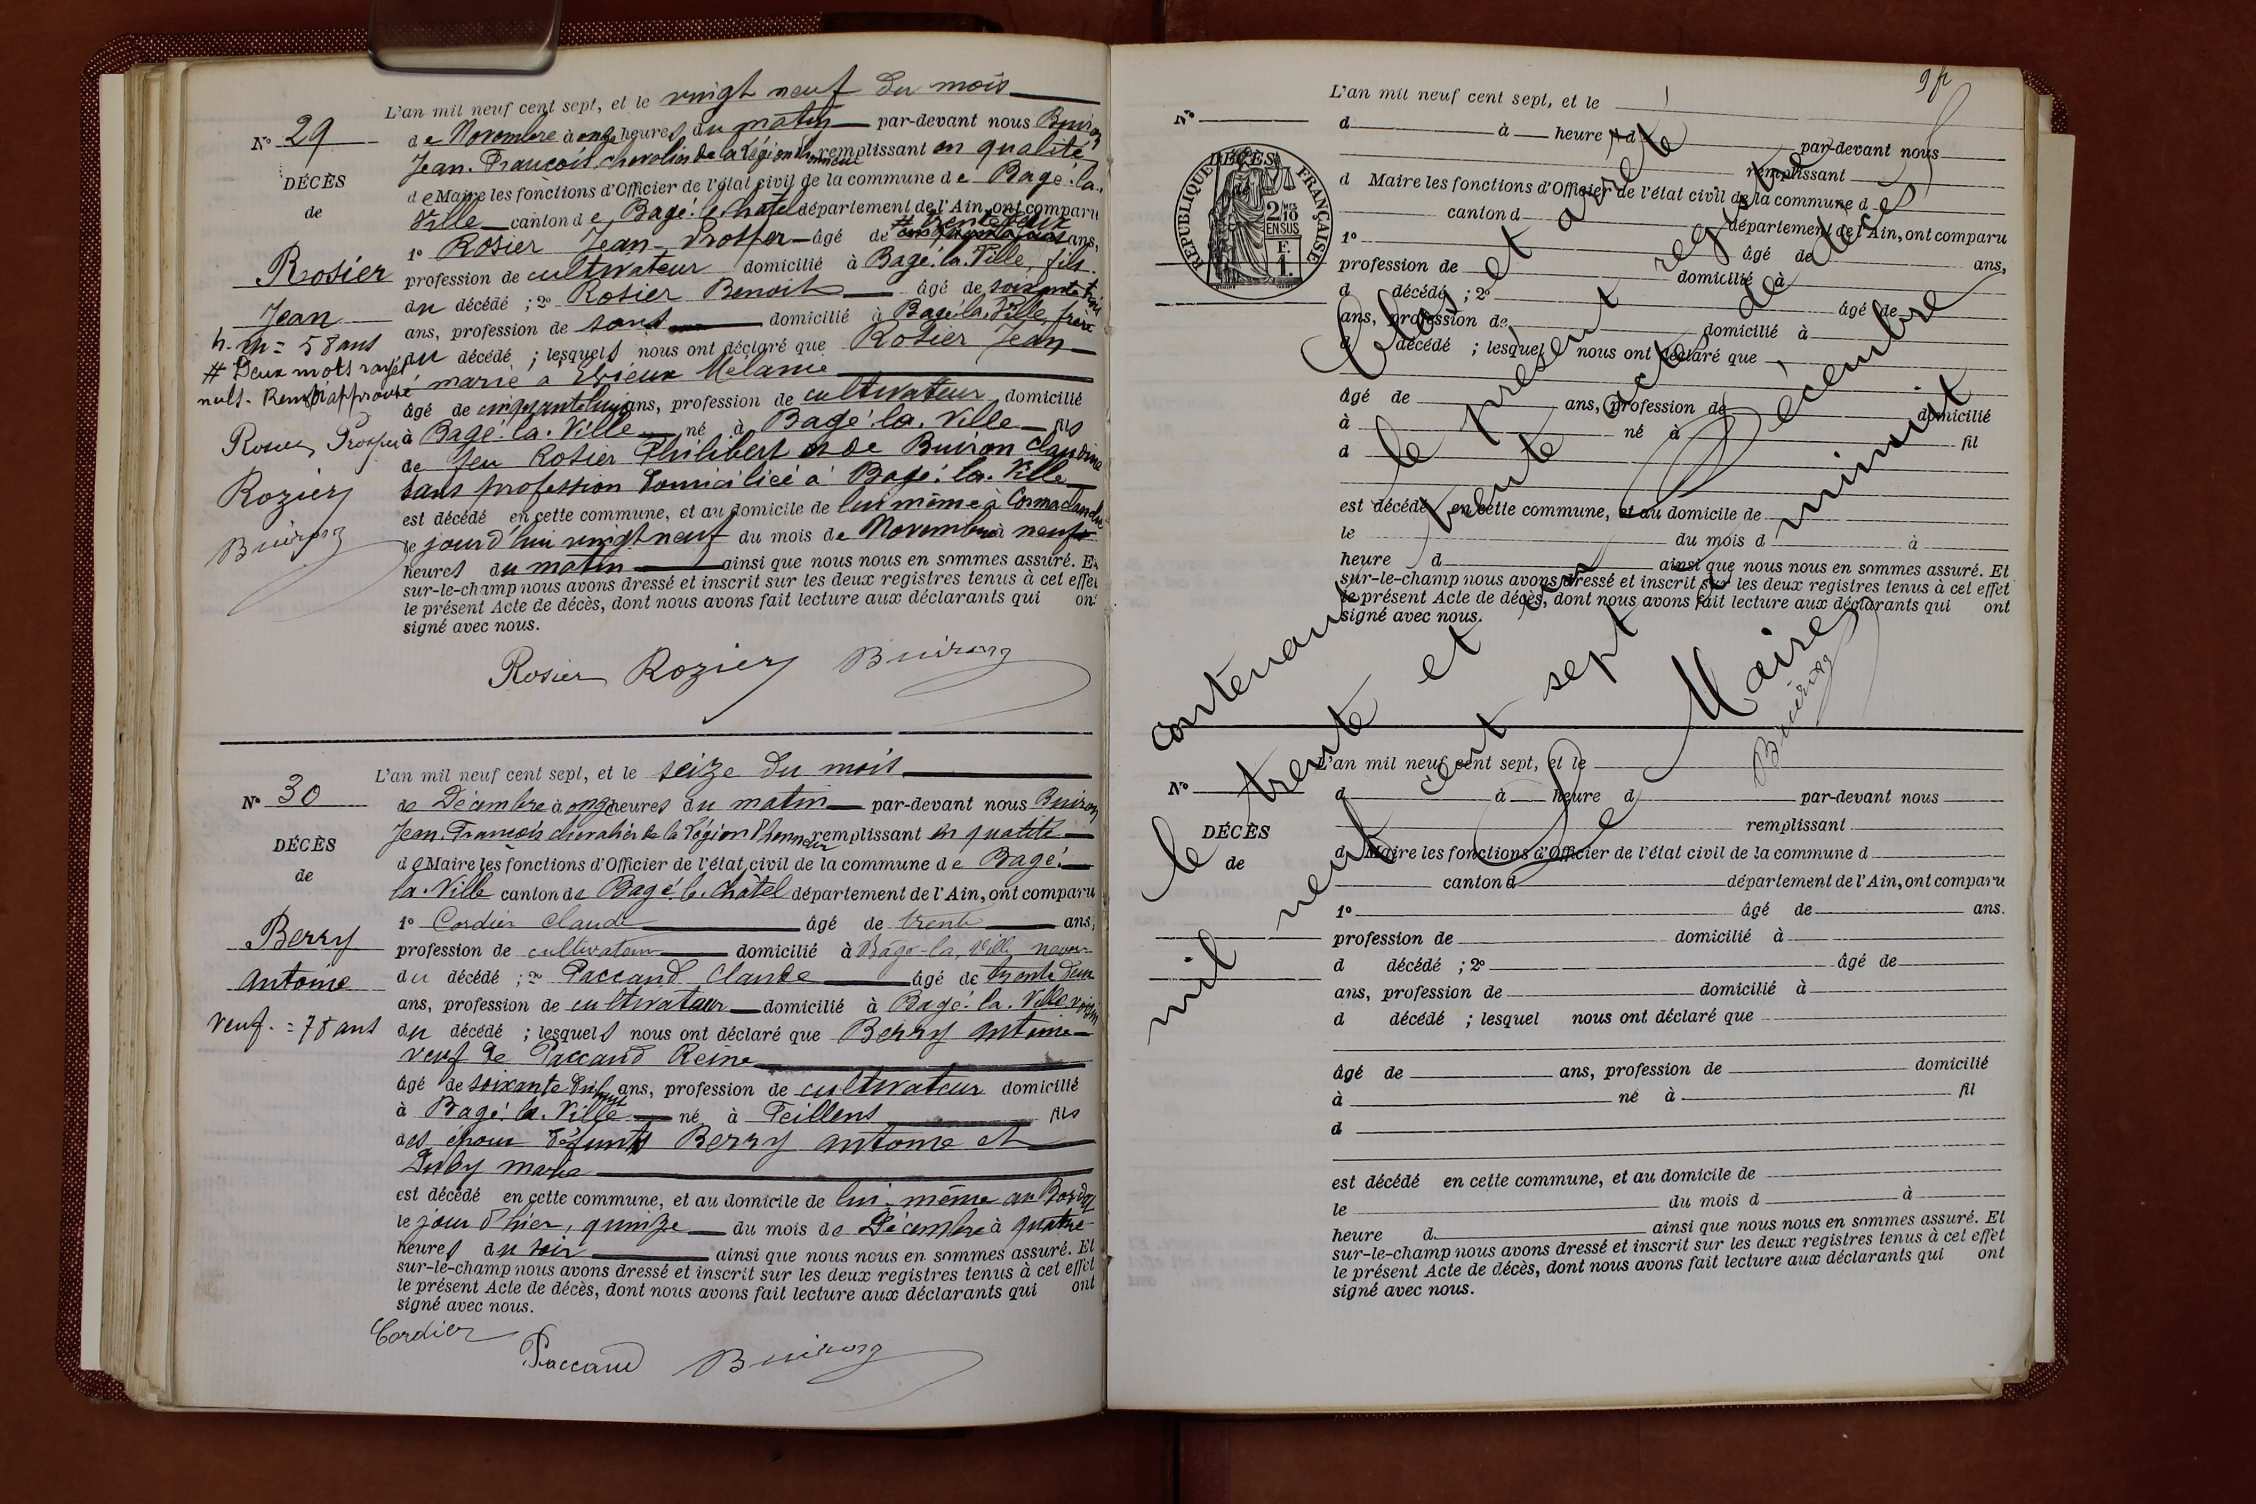 L'an mil neuf cent sept, et le vingt neuf du mois
N° 29
de Novembre à onze heures du matin par-devant nous Buiron
Jean-François, chevalier de la Légion d'honneur remplissant en qualité
DÉCÈS
de Maire les fonctions d'Officier de l'état civil de la commune de Bagé-la-
de
Ville canton de Bagé-le-Châtel département de l'Ain, ont comparu
# trente deux
1° Rosier Jean-Prosper âgé de ans,
Rosier
profession de cultivateur domicilié à Bagé-la-Ville, fils
du décédé ; 2° Rosier Benoit âgé de soixante trois
Jean
ans, profession de sans domicilié à Bagé-la-Ville, frère
h. m = 58 ans
du décédé ; lesquels nous ont déclaré que Rosier Jean
# Deux mots rayés
marié à Mélanie
nuls. Renvoi approuvé
âgé de cinquante huit ans, profession de cultivateur domicilié
Rosier Prosper
à Bagé-la-Ville né à Bagé-la-Ville fils
de feu Rosier Philibert et de Buiron Claudine
Rozier
sans profession domiciliée à Bagé-la-Ville
est décédé en cette commune, et au domicile de lui même à Cormaclandre
Buiron
le jourd'hui vingt neuf du mois de Novembre à neuf
heures du matin ainsi que nous nous en sommes assuré. Et
sur-le-champ nous avons dressé et inscrit sur les deux registres tenus à cet effet
le présent Acte de décès, dont nous avons fait lecture aux déclarants qui ont
signé avec nous.
Rosier Rozier Buiron
L'an mil neuf cent sept, et le seize du mois
N° 30
de Décembre à onze heures du matin par-devant nous Buiron
Jean-François chevalier de la Légion d'honneur remplissant en qualité
DÉCÈS
de Maire les fonctions d'Officier de l'état civil de la commune de Bagé-
de
la-Ville canton de Bagé-le-Châtel département de l'Ain, ont comparu
1° Cordier Claude âgé de trente ans,
Berry
profession de cultivateur domicilié à Bagé-la-Ville neveu
Antoine
du décédé ; 2° Paccaud Claude âgé de trente deux
ans, profession de cultivateur domicilié à Bagé-la-Ville voisin
veuf. = 78 ans
du décédé ; lesquels nous ont déclaré que Berry Antoine
veuf de Paccaud Reine
âgé de soixante dix huit ans, profession de cultivateur domicilié
à Bagé-la-Ville né à Feillens fils
des époux défunts Berry Antoine et
Marie
est décédé en cette commune, et au domicile de lui-même au
le jour d'hier, quinze du mois de Décembre à quatre
heures du soir ainsi que nous nous en sommes assuré. Et
sur-le-champ nous avons dressé et inscrit sur les deux registres tenus à cet effet
le présent Acte de décès, dont nous avons fait lecture aux déclarants qui ont
signé avec nous.
Cordier Paccaud Buiron
L'an mil neuf cent sept, et le
N°
d à heure d par-devant nous
remplissant
DÉCÈS
RÉPUBLIQUE FRANÇAISE
2/10 EN SUS
F. 1.
d Maire les fonctions d'Officier de l'état civil de la commune d
canton d département de l'Ain, ont comparu
1° âgé de ans,
profession de domicilié à
d décédé ; 2° âgé de
ans, profession de domicilié à
d décédé ; lesquel nous ont déclaré que
âgé de ans, profession de domicilié
à né à fil
d
est décédé en cette commune, et au domicile de
le du mois d à
heure d ainsi que nous nous en sommes assuré. Et
sur-le-champ nous avons dressé et inscrit sur les deux registres tenus à cet effet
le présent Acte de décès, dont nous avons fait lecture aux déclarants qui ont
signé avec nous.
Clos et arrêté
le présent registre
contenant trente actes de décès
le trente et un Décembre
mil neuf cent sept à minuit
Le Maire,
Buiron
L'an mil neuf cent sept, et le
N°
d à heure d par-devant nous
remplissant
DÉCÈS
d Maire les fonctions d'Officier de l'état civil de la commune d
de
canton d département de l'Ain, ont comparu
1° âgé de ans.
profession de domicilié à
d décédé ; 2° âgé de
ans, profession de domicilié à
d décédé ; lesquel nous ont déclaré que
âgé de ans, profession de domicilié
à né à fil
d
est décédé en cette commune, et au domicile de
le du mois d à
heure d ainsi que nous nous en sommes assuré. Et
sur-le-champ nous avons dressé et inscrit sur les deux registres tenus à cet effet
le présent Acte de décès, dont nous avons fait lecture aux déclarants qui ont
signé avec nous.